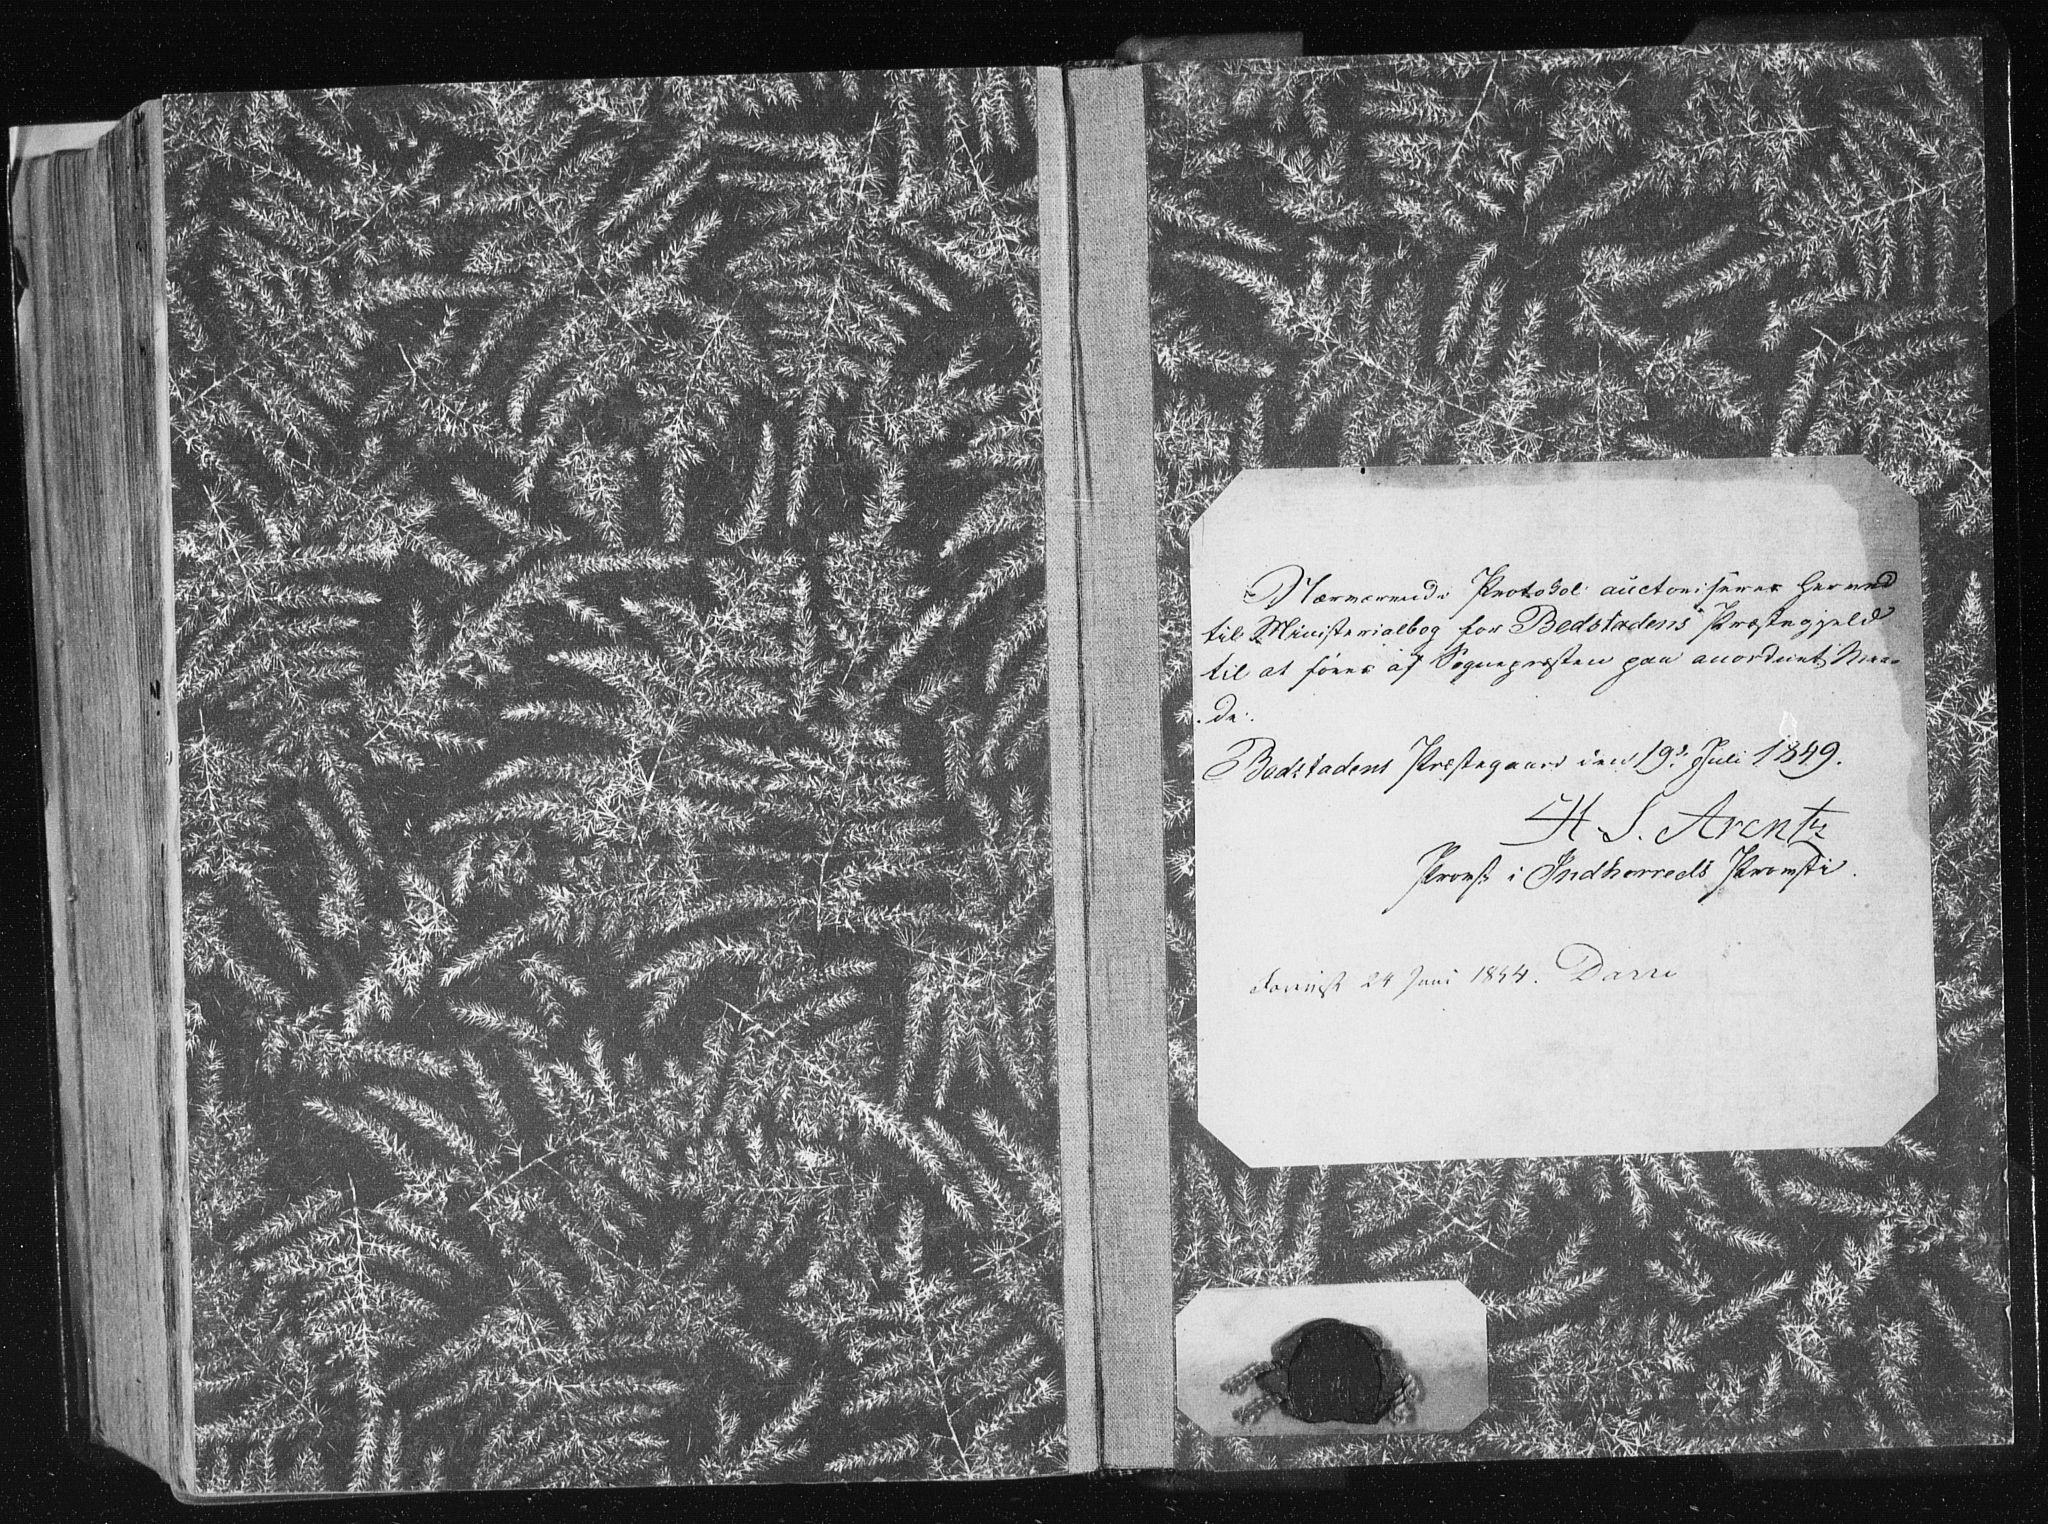 Nærværende Protokol auctoriseres herved
til Ministerialbog for Bedstadens Præstegjeld
til at føres af Sognepræsten paa anordnet Maa-
de.
Bedstadens Præstegaard den 19d. Juli 1849.
H. S. Arentz
Provst i Indherreds Provsti.
24 Juni 1854. Darre